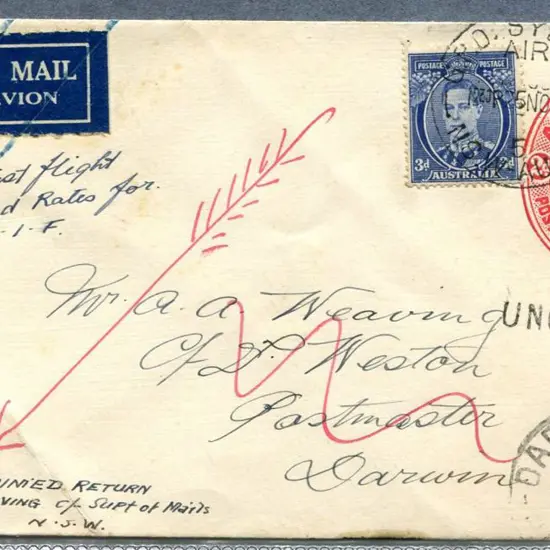 MAIL
AVION
st flight
d Rates for
I. F.
POSTAGE POSTAGE
3d
AUSTRALIA
SY
AIR
Mr. A. A. Weaving
C/ Dr. Weston
Postmaster
Darwin
UNC
DAR
RETURN
VING c/ Supt of Mails
N.S.W.